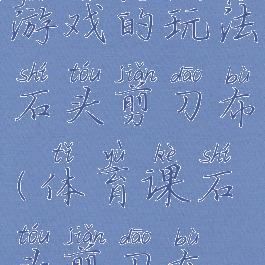 游戏的玩法
shí tóu jiǎn dāo bù
石头剪刀布
tǐ yù kè shí
(体育课石
tóu jiǎn dāo bù
头剪刀布